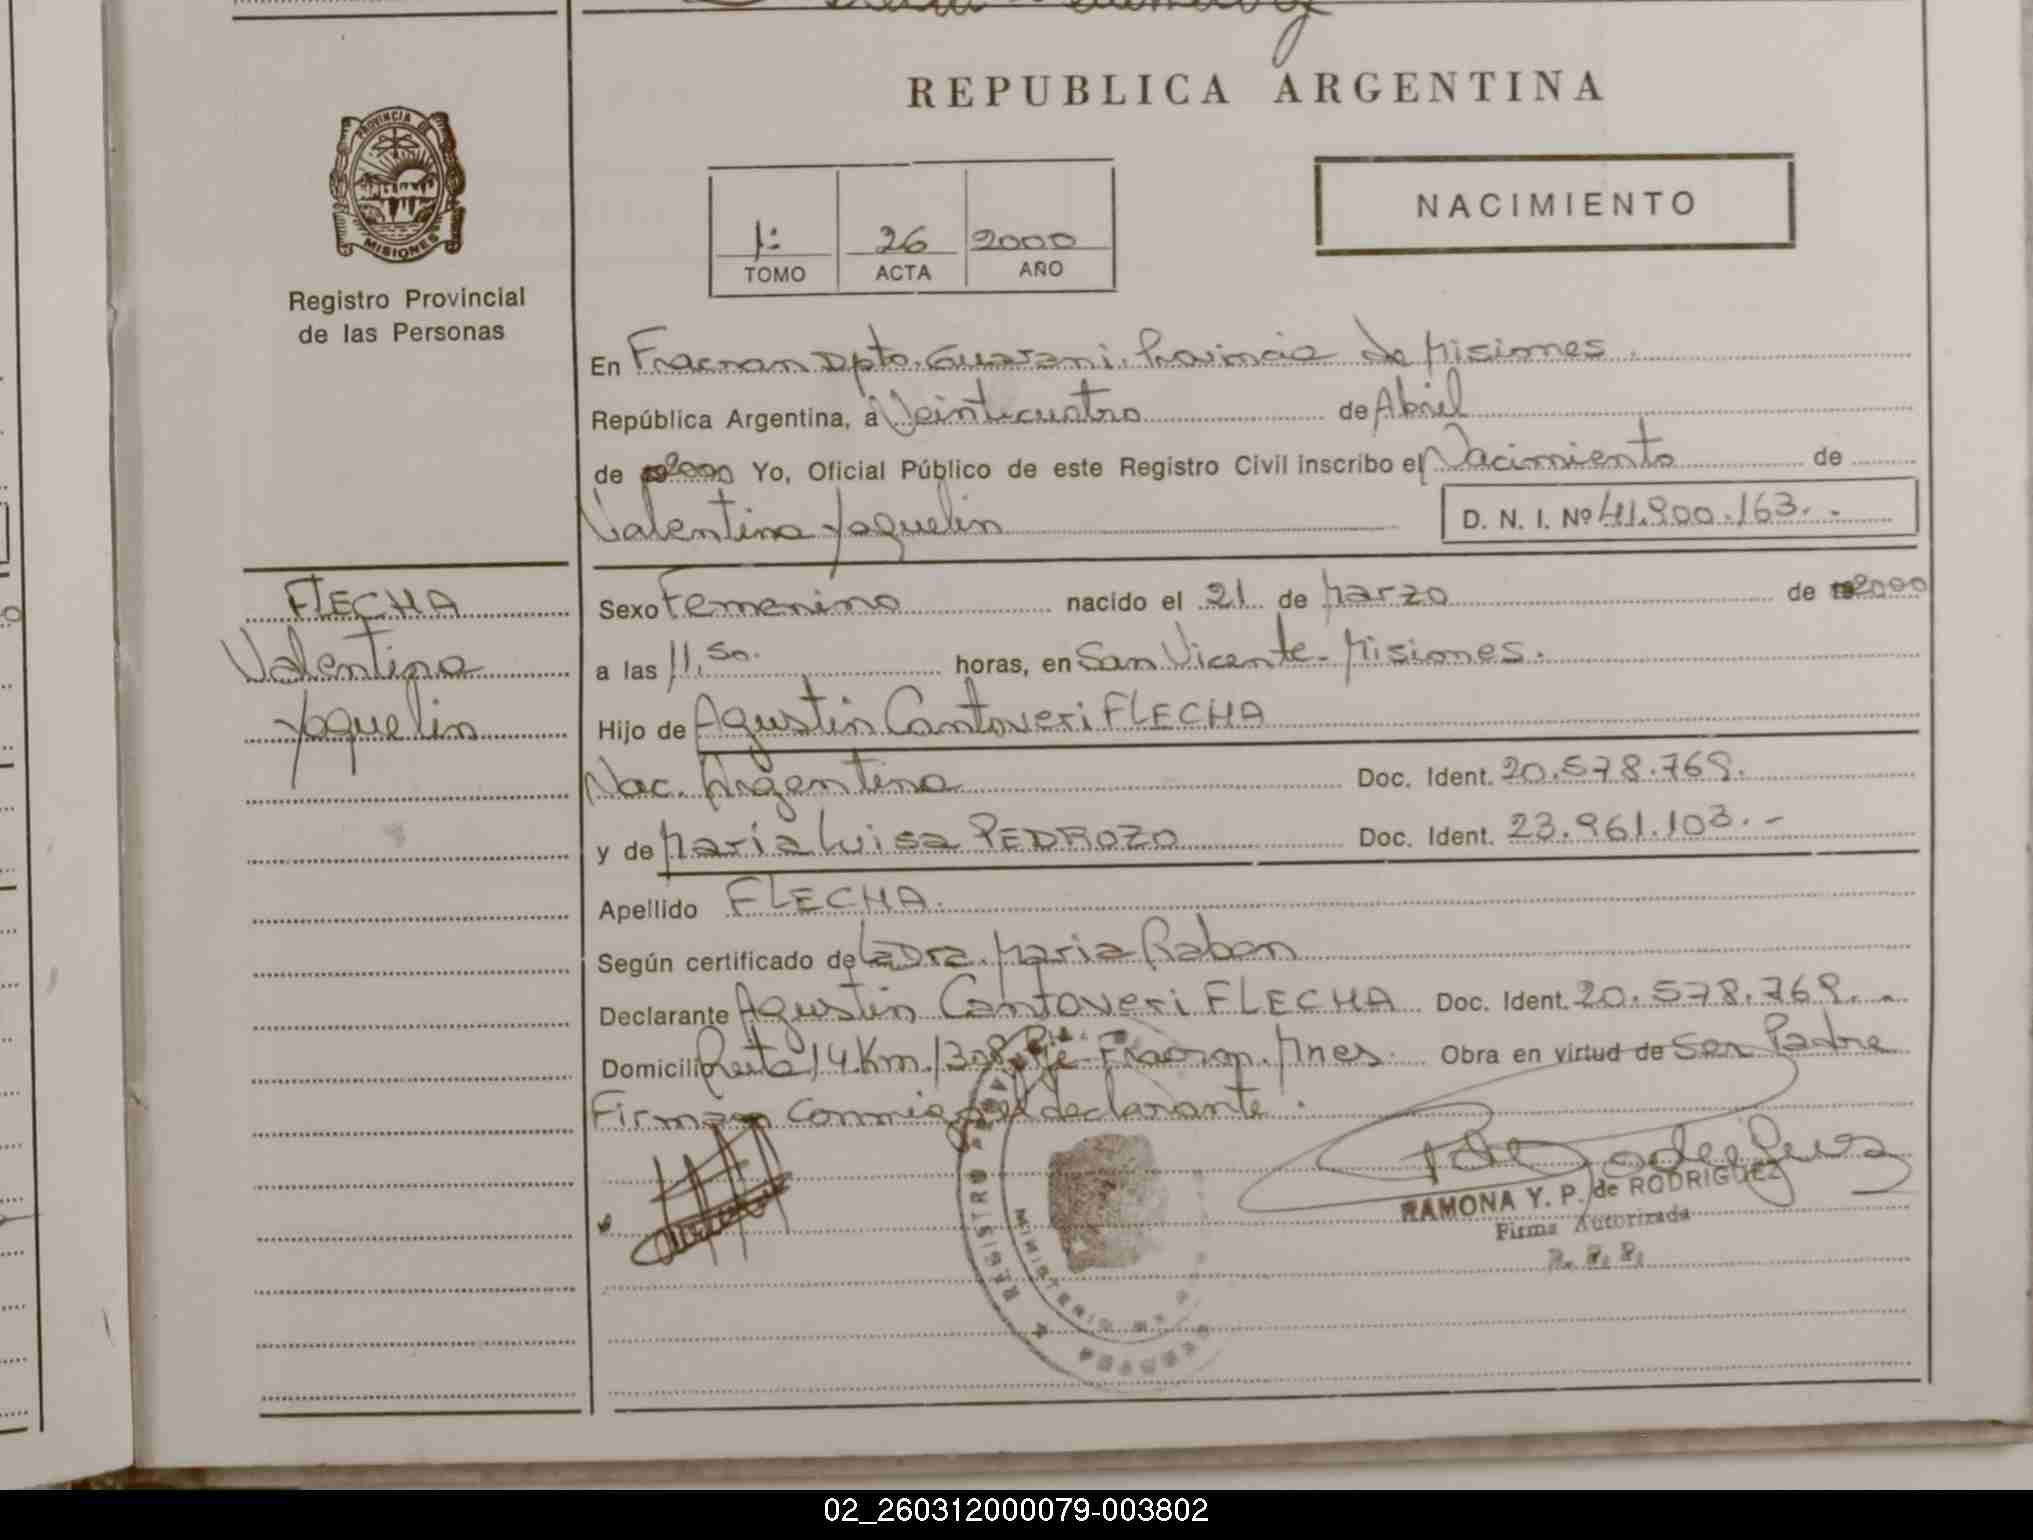 REPUBLICA ARGENTINA
PROVINCIA DE
MISIONES
Registro Provincial
de las Personas
1:
TOMO
26
ACTA
2000
AÑO
NACIMIENTO
En Fracran Dpto. Guarani. Provincia de Misiones
República Argentina, a Veinticuatro de Abril
de 2000 Yo, Oficial Público de este Registro Civil inscribo el Nacimiento de
Valentina Yaquelin
D. N. I. Nº 41.900.163.-
FLECHA
Valentina
Yaquelin
Sexo Femenino nacido el 21 de Marzo de 2000
a las 11,50. horas, en San Vicente - Misiones.
Hijo de Agustin Cantoveri FLECHA
Nac. Argentina Doc. Ident. 20.578.769.
y de Maria Luisa PEDROZO Doc. Ident. 23.961.103.-
Apellido FLECHA.
Según certificado de La Dra. Maria Rabon
Declarante Agustin Cantoveri FLECHA Doc. Ident. 20.578.769.-
Domicilio Ruta 14 Km. 1308 Pje Fracran. Mnes. Obra en virtud de Ser Padre
Firman conmigo el declarante.
REGISTRO
MINISTERIO
RAMONA Y. P. de RODRIGUEZ
Firma Autorizada
02_260312000079-003802